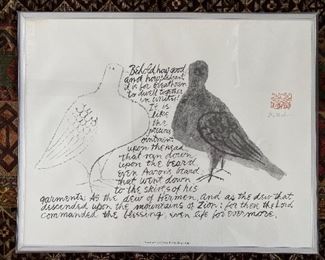 Behold how good
and how pleasant
it is for brethren
to dwell together
in unity!
It is
like
the
precious
ointment
upon the head
that ran down
upon the beard
even Aaron's beard
that went down
to the skirts of his
garments: As the dew of Hermon and as the dew that
descended upon the mountains of Zion: for there the Lord
commanded the blessing even life for evermore.